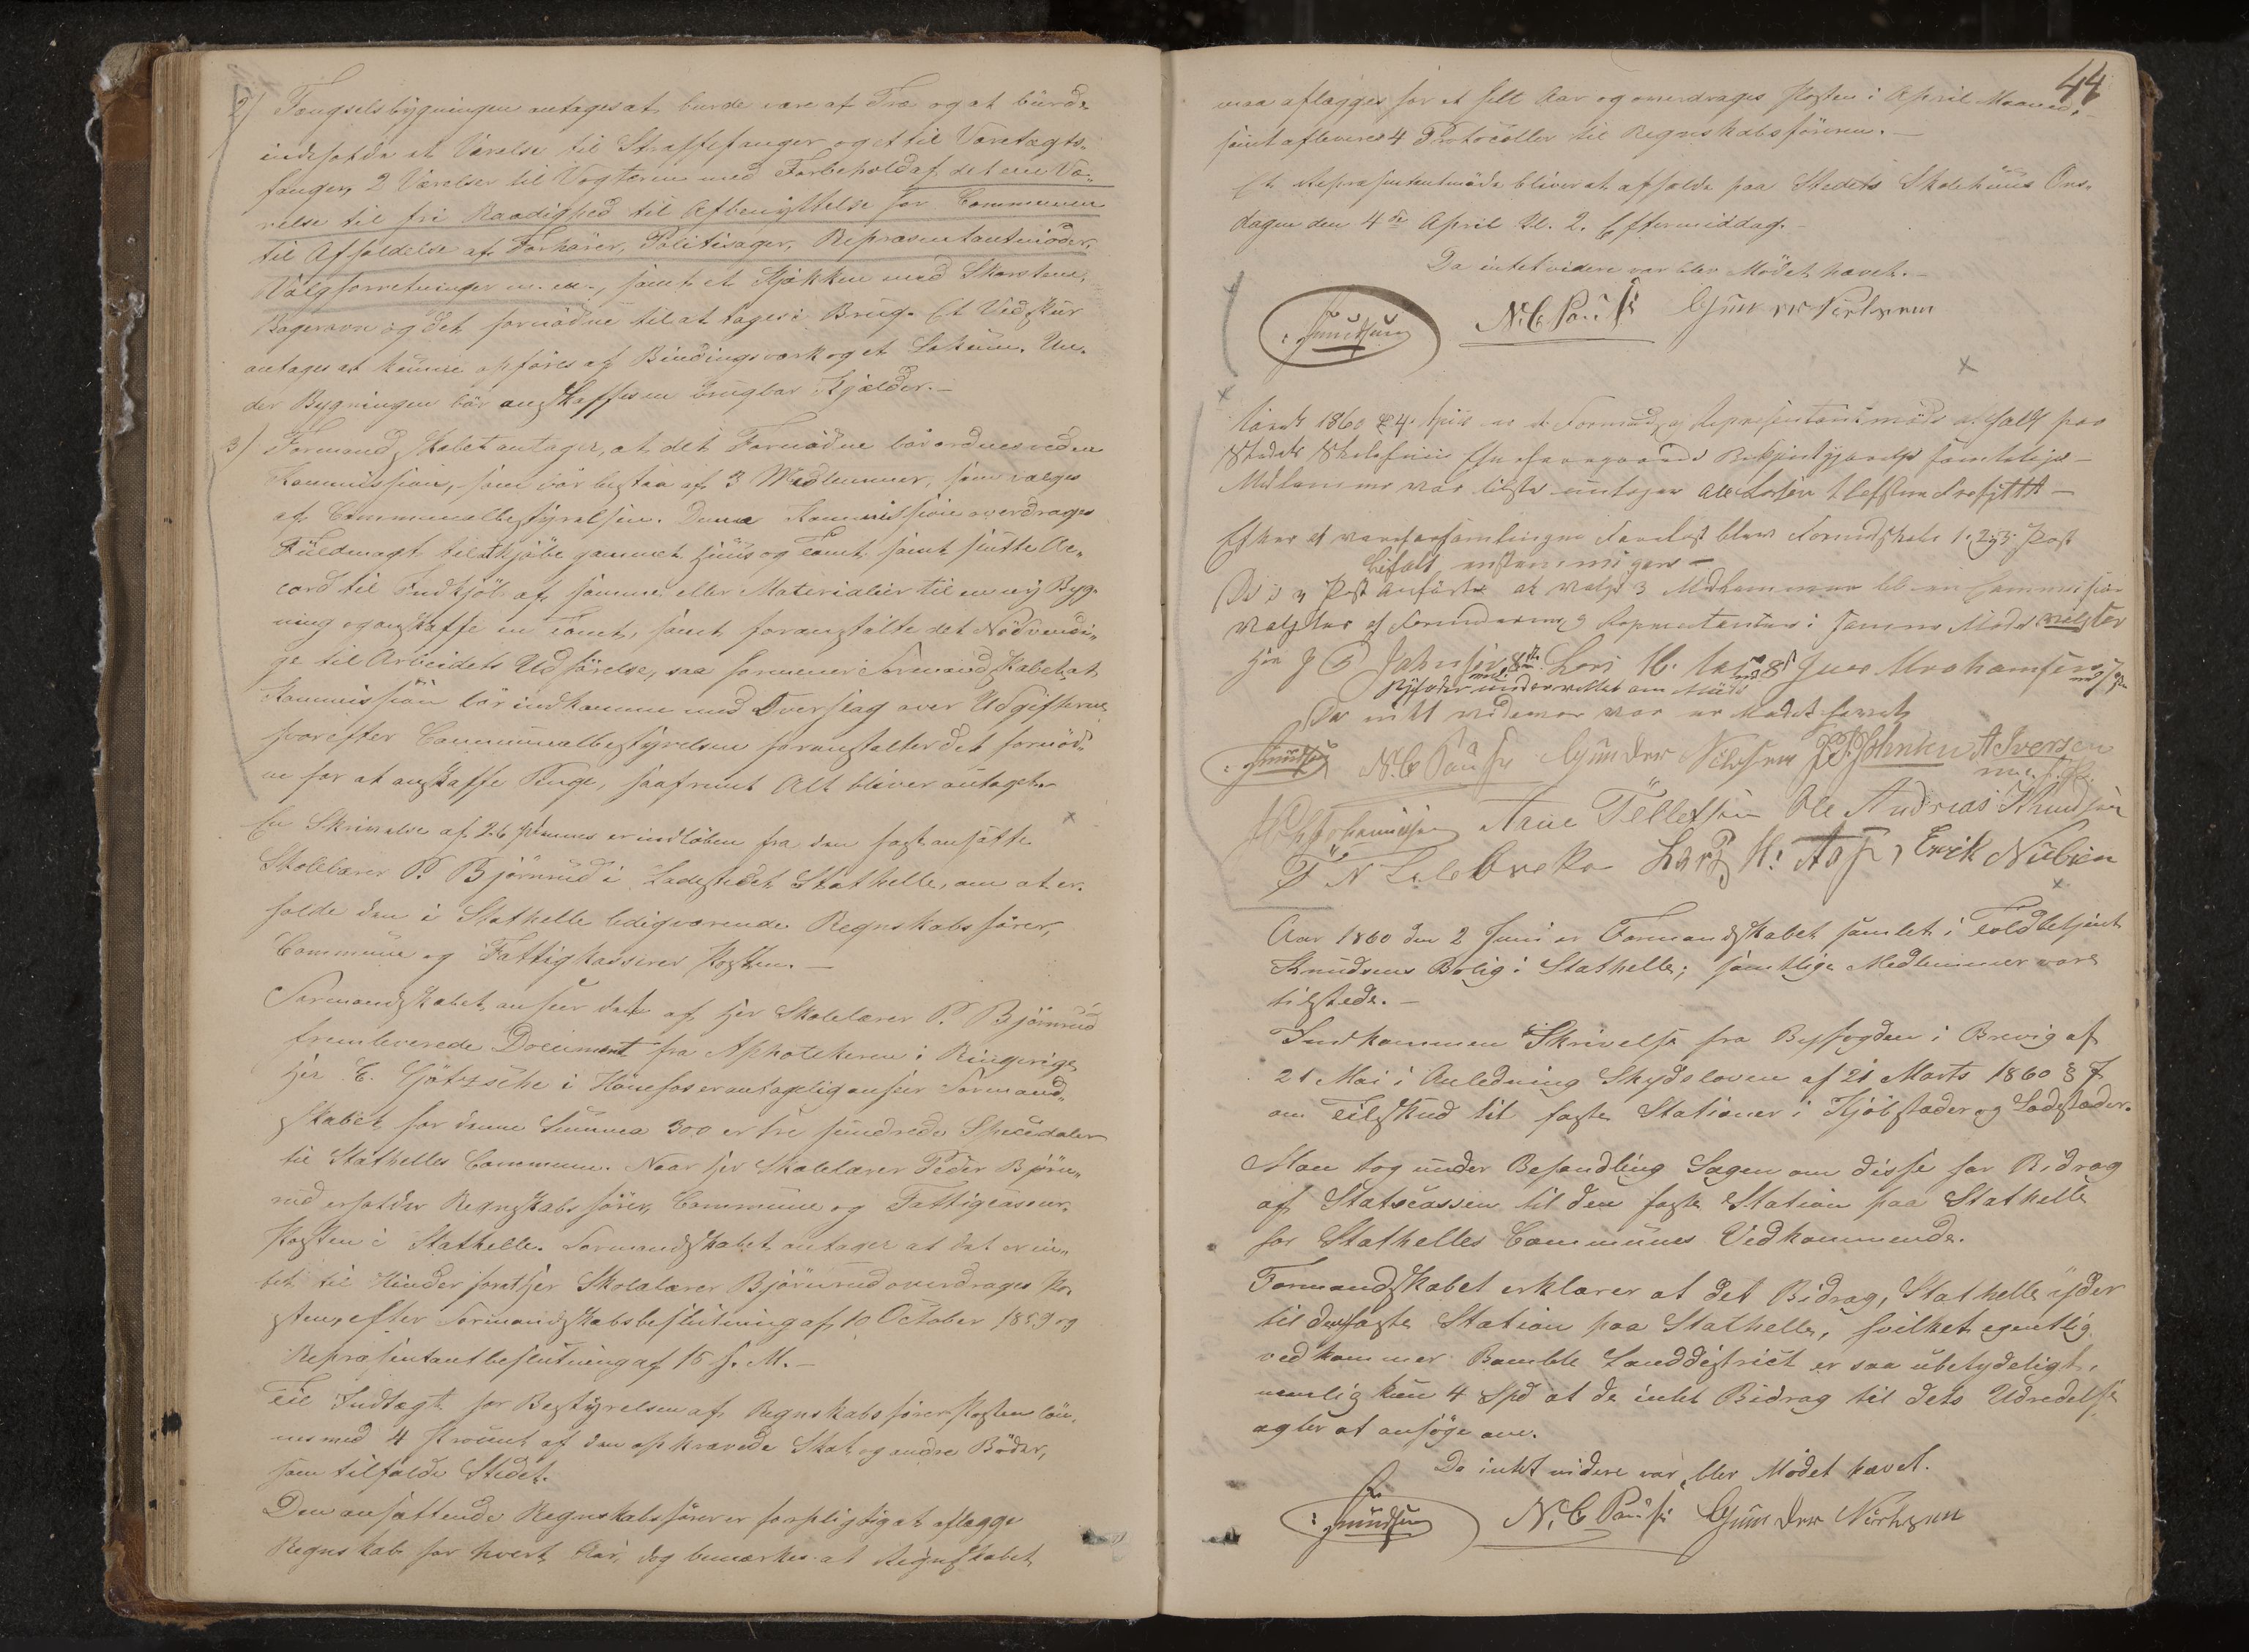 2) Fængselsbygningen antages at burde være af Træ og at burde
indeholde et Værelse til Straffefanger og et til Varetægts-
fanger, 2 Værelser til Vogteren med Forbehold af det ene Væ-
relse til fri Raadighed til Afbenyttelse for Communen
til Afholdelse af Forhører, Politisager, Repræsentantmöder,
Valgforretninger m. m., samt et Kjøkken med Skorsteen,
Bagerovn og det fornödne til at tages i Brug. Et Vedskur
antages at kunne opföres af Bindingsværk og et Lokum. Un-
der Bygningen bör anskaffes en brugbar Kjælder. –
3) Formandskabet antager, at det Fornödne bör ordnes ved en
Kommission, som bör bestaa af 3 Medlemmer, som vælges
af Communalbestyrelsen. Denne Kommission overdrages
Fuldmagt til at kjöbe gammelt Huus og Tomt samt slutte Ac-
cord til Indkjöb af samme eller Materialier til en ny Byg-
ning og anskaffe en Tomt, samt foranstalte det Nödvendi-
ge til Arbeidets Udförelse, saa formener Formandskabet at
Kommission bör indkomme med Overslag over Udgifterne
hvorefter Communalbestyrelsen foranstalter det fornöd-
ne for at anskaffe Penge, saafremt Alt bliver antaget.
En Skrivelse af 26 er indlöben fra den fastansatte
Skolelærer P. Björnrud i Ladestedet Stathelle, om at er-
holde den i Stathelle ledigværende Regnskabsförer,
Commune og Fattigkasserer Posten. –
Formandskabet anseer det af Hr Skolelærer P. Björnrud
fremleverede Document fra Apothekeren i Ringerige
Hr C. Götzsche i Hönefos er antagelig anseer Formand-
skabet for denne Summa 300 er tre hundrede Speciedaler
til Stathelles Commune. Naar Hr Skolelærer Peder Björn-
rud erholder Regnskabsförer, Commune og Fattigcasserer
Posten i Stathelle. Formandskabet antager at det er in-
tet til Hinder for at Hr Skolelærer Björnrud overdrages Po-
sten, efter Formandskabsbeslutning af 10 October 1859 og
Repræsentantbeslutning af 15 s. M. –
Til Indtægt for Bestyrelsen af Regnskabsförer Posten lön-
nes med 4 Procent af den opkrævede Skat og andre Böder,
som tilfalde Stedet.
Den ansættende Regnskabsförer er forpligtig at aflægge
Regnskab for hvert Aar, dog bemærkes at Regnskabet
44
maa aflægges for et helt Aar og overdrages Posten i April Maaned,
samt afleveres 4 Protocoller til Regnskabsföreren. –
Et Repræsentantmöde bliver at afholde paa Stedets Skolehuus Ons-
dagen den 4de April Kl. 2. Eftermiddag. –
Da intet videre var blev Mödet hævet. –
Knudsen N. C. Paus Gunder Nielsen
Aaret 1860 4 April er et Formands og Repræsentantmöde afholt paa
Stedets Skolehuus Bekjentgjörelse samtelige
Medlemmer var tilsted
Efter at Formdskabs 1. 2 og 3 Post
bifalt
3 Post at valge 3 Medlemmer til en Commission
i samme Möde valgtes
Lars H. Aas
underrettet om Möde
Da intet videre var er Mödet hævet
Knudsen N. C. Paus Gunder Nielsen J. P. Johnsen A Iversen
Arne Tellefsen Ole Andreas Knudsen
Lars H. Aas, Erik Nielsen
Aar 1860 den 2 Juni er Formandskabet samlet i Toldbetjent
Knudsens Bolig i Stathelle; samtlige Medlemmer vare
tilstede. –
Indkommen Skrivelse fra Byfogden i Brevig af
21 Mai i Anledning Skydsloven af 21 Marts 1860 § 7
om Tilskud til faste Stationer i Kjöbstæder og Ladestæder.
Man tog under Behandling Sagen om disse for Bidrag
af Statscassen til den faste Station paa Stathelle
for Stathelles Communes Vedkommende.
Formandskabet erklærer at det Bidrag, Stathelle yder
til den faste Station paa Stathelle, hvilket egentlig
vedkommer Bamble Landdistrict er saa ubetydeligt,
nemlig kun 4 Spd at de intet Bidrag til dets Udredelse
agter at ansöge om.
Da intet videre var, blev Mödet hævet.
Knudsen N. C. Paus Gunder Nielsen